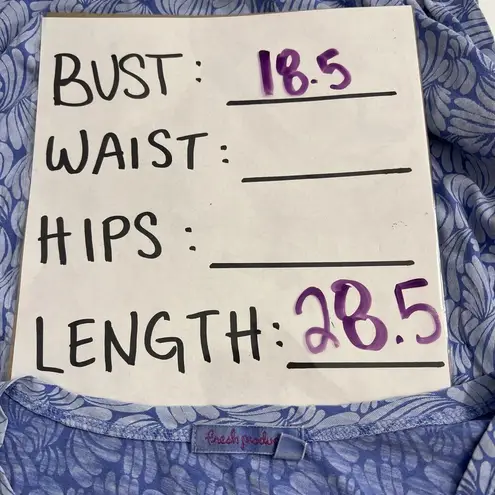 BUST: 18.5
WAIST:
HIPS:
LENGTH: 28.5
fresh